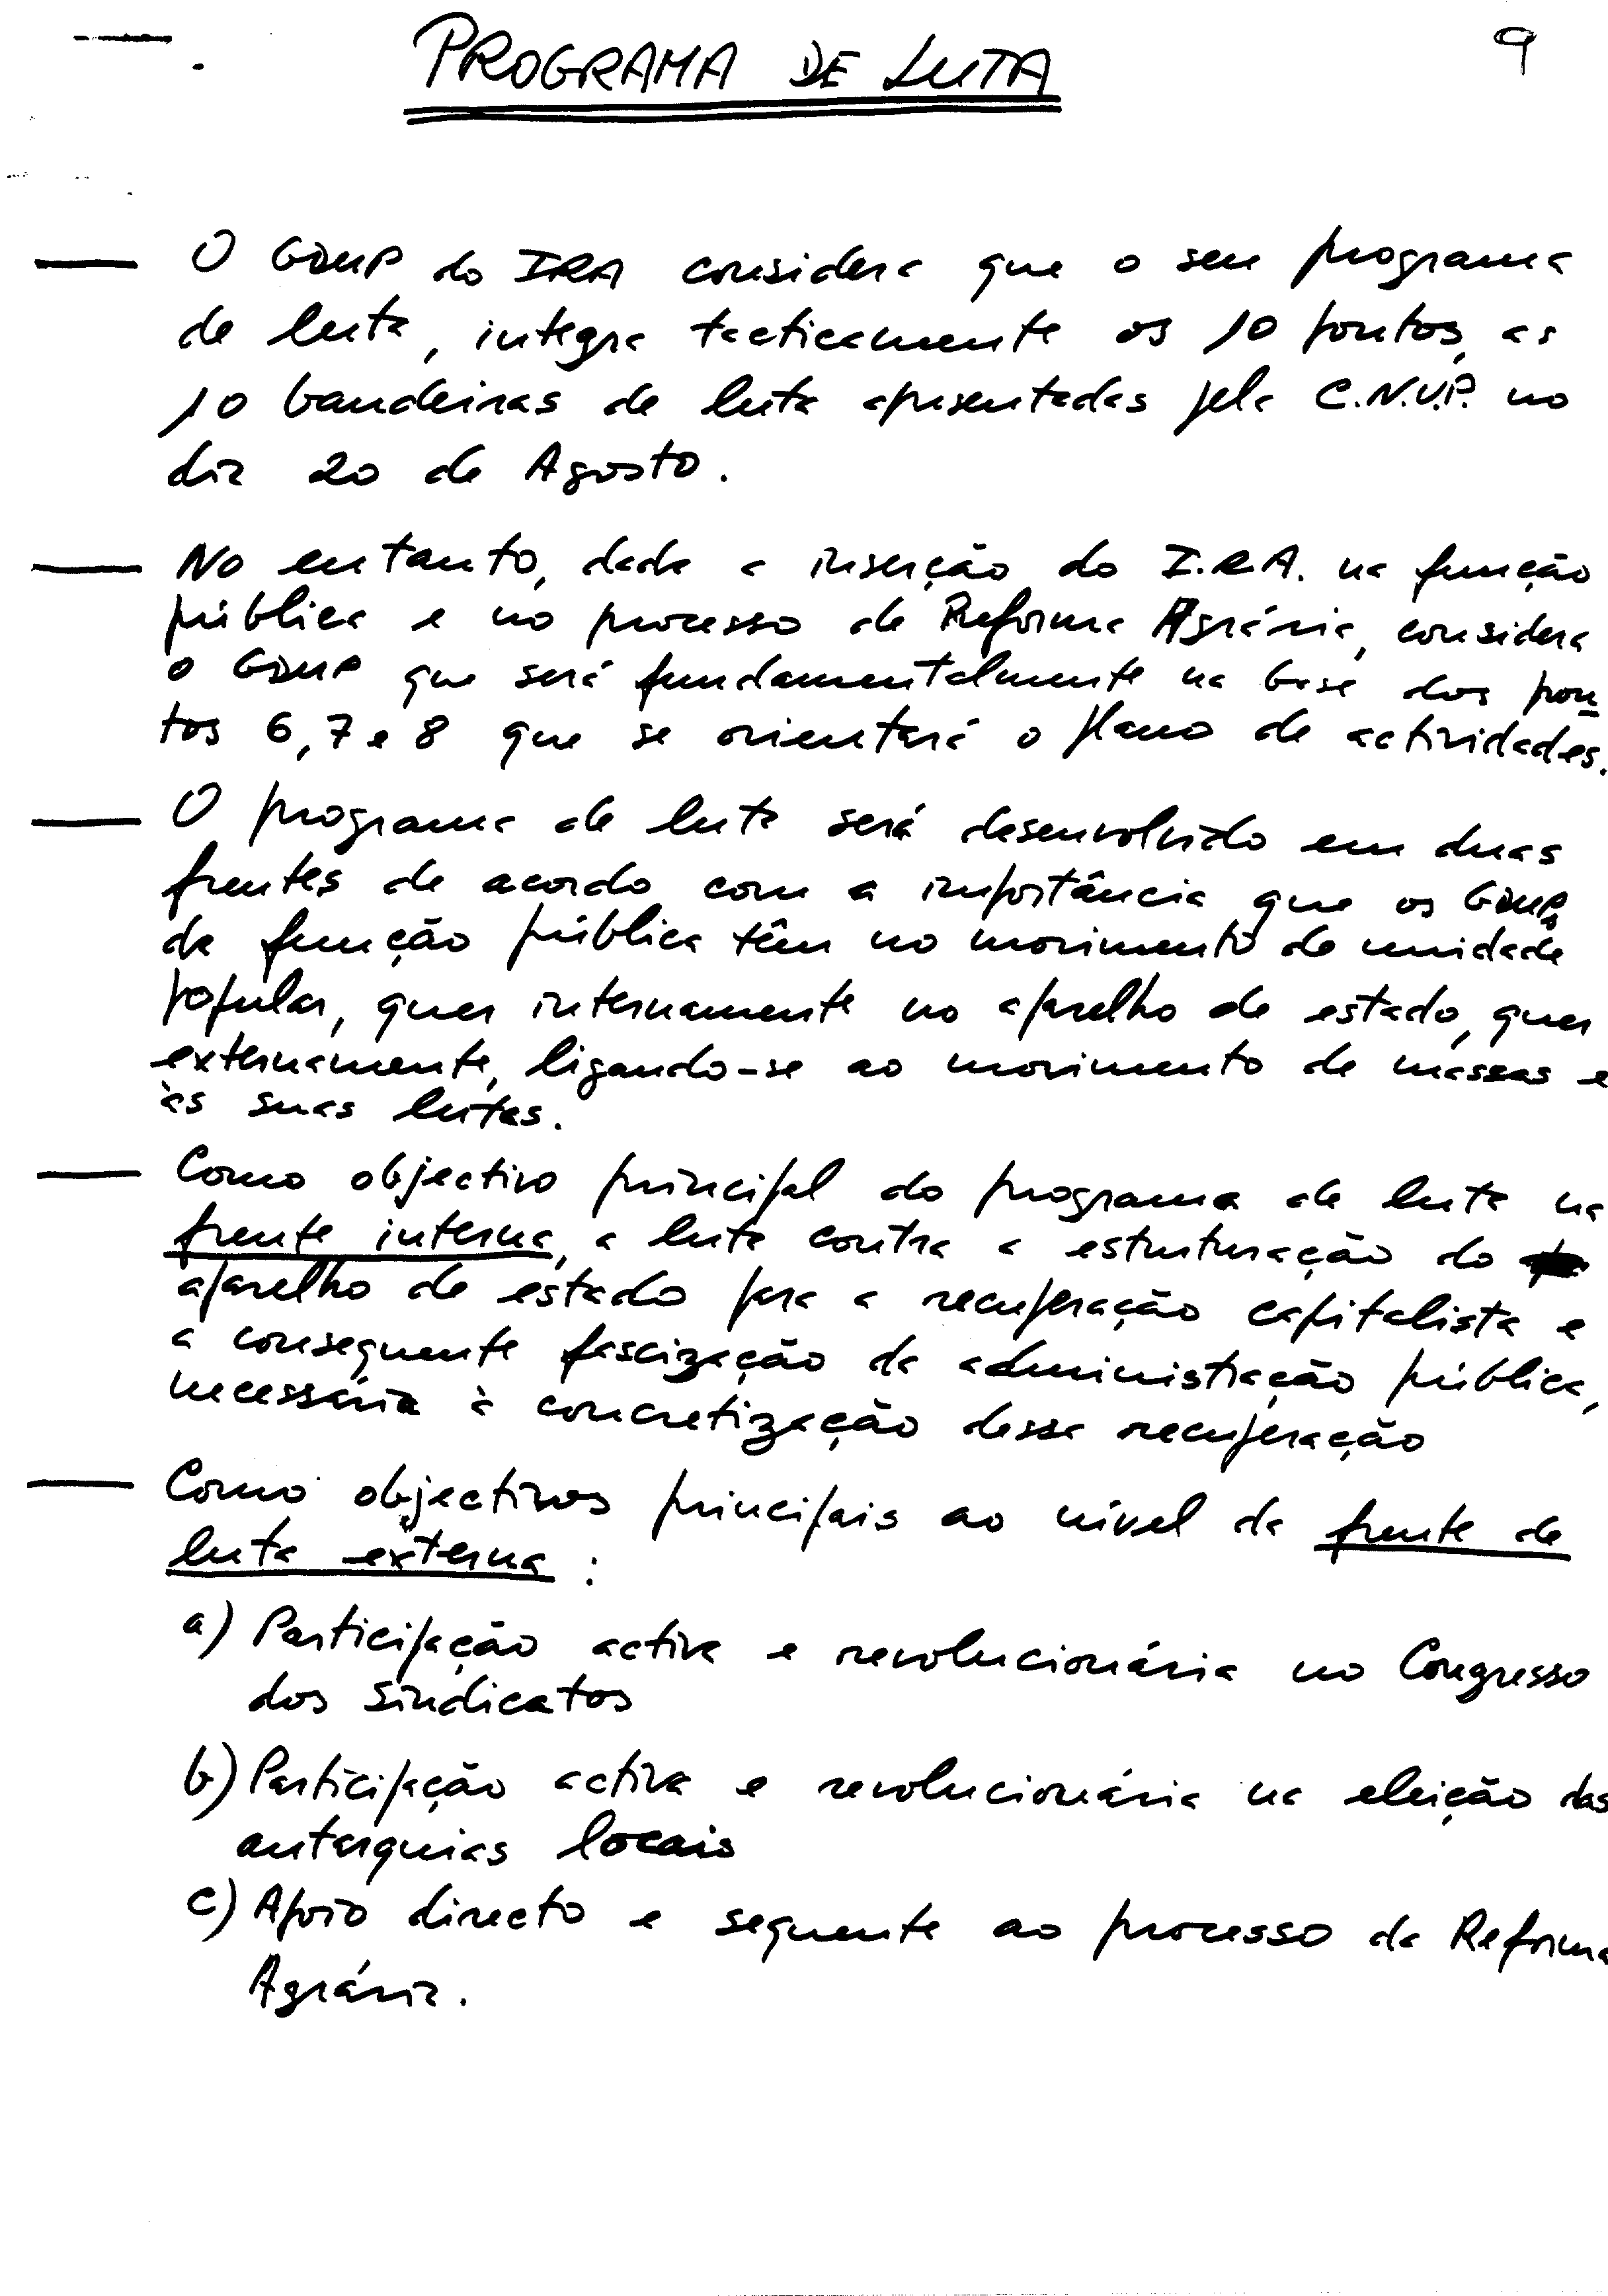 PROGRAMA DE LUTA
9
— O GDUP do IRA considera que o seu programa
de luta, integra tacticamente os 10 pontos, as
10 bandeiras de luta apresentadas pela C.N.U.P. no
dia 20 de Agosto.
— No entanto, dada a inserção do I.R.A. na função
pública e no processo de Reforma Agrária, considera
o GDUP que será fundamentalmente na base dos pon-
tos 6, 7 e 8 que se orientará o plano de actividades.
— O programa de luta será desenvolvido em duas
frentes de acordo com a importância que os GDUPs
da função pública têm no movimento de unidade
popular, quer internamente no aparelho de estado, quer
externamente, ligando-se ao movimento de massas e
às suas lutas.
— Como objectivo principal do programa de luta na
frente interna, a luta contra a estruturação do
aparelho de estado para a recuperação capitalista e
a consequente fascização da administração pública,
necessária à concretização dessa recuperação
— Como objectivos principais ao nível da frente de
luta externa :
a) Participação activa e revolucionária no Congresso
dos Sindicatos
b) Participação activa e revolucionária na eleição das
autarquias locais
c) Apoio directo e sequente ao processo da Reforma
Agrária.